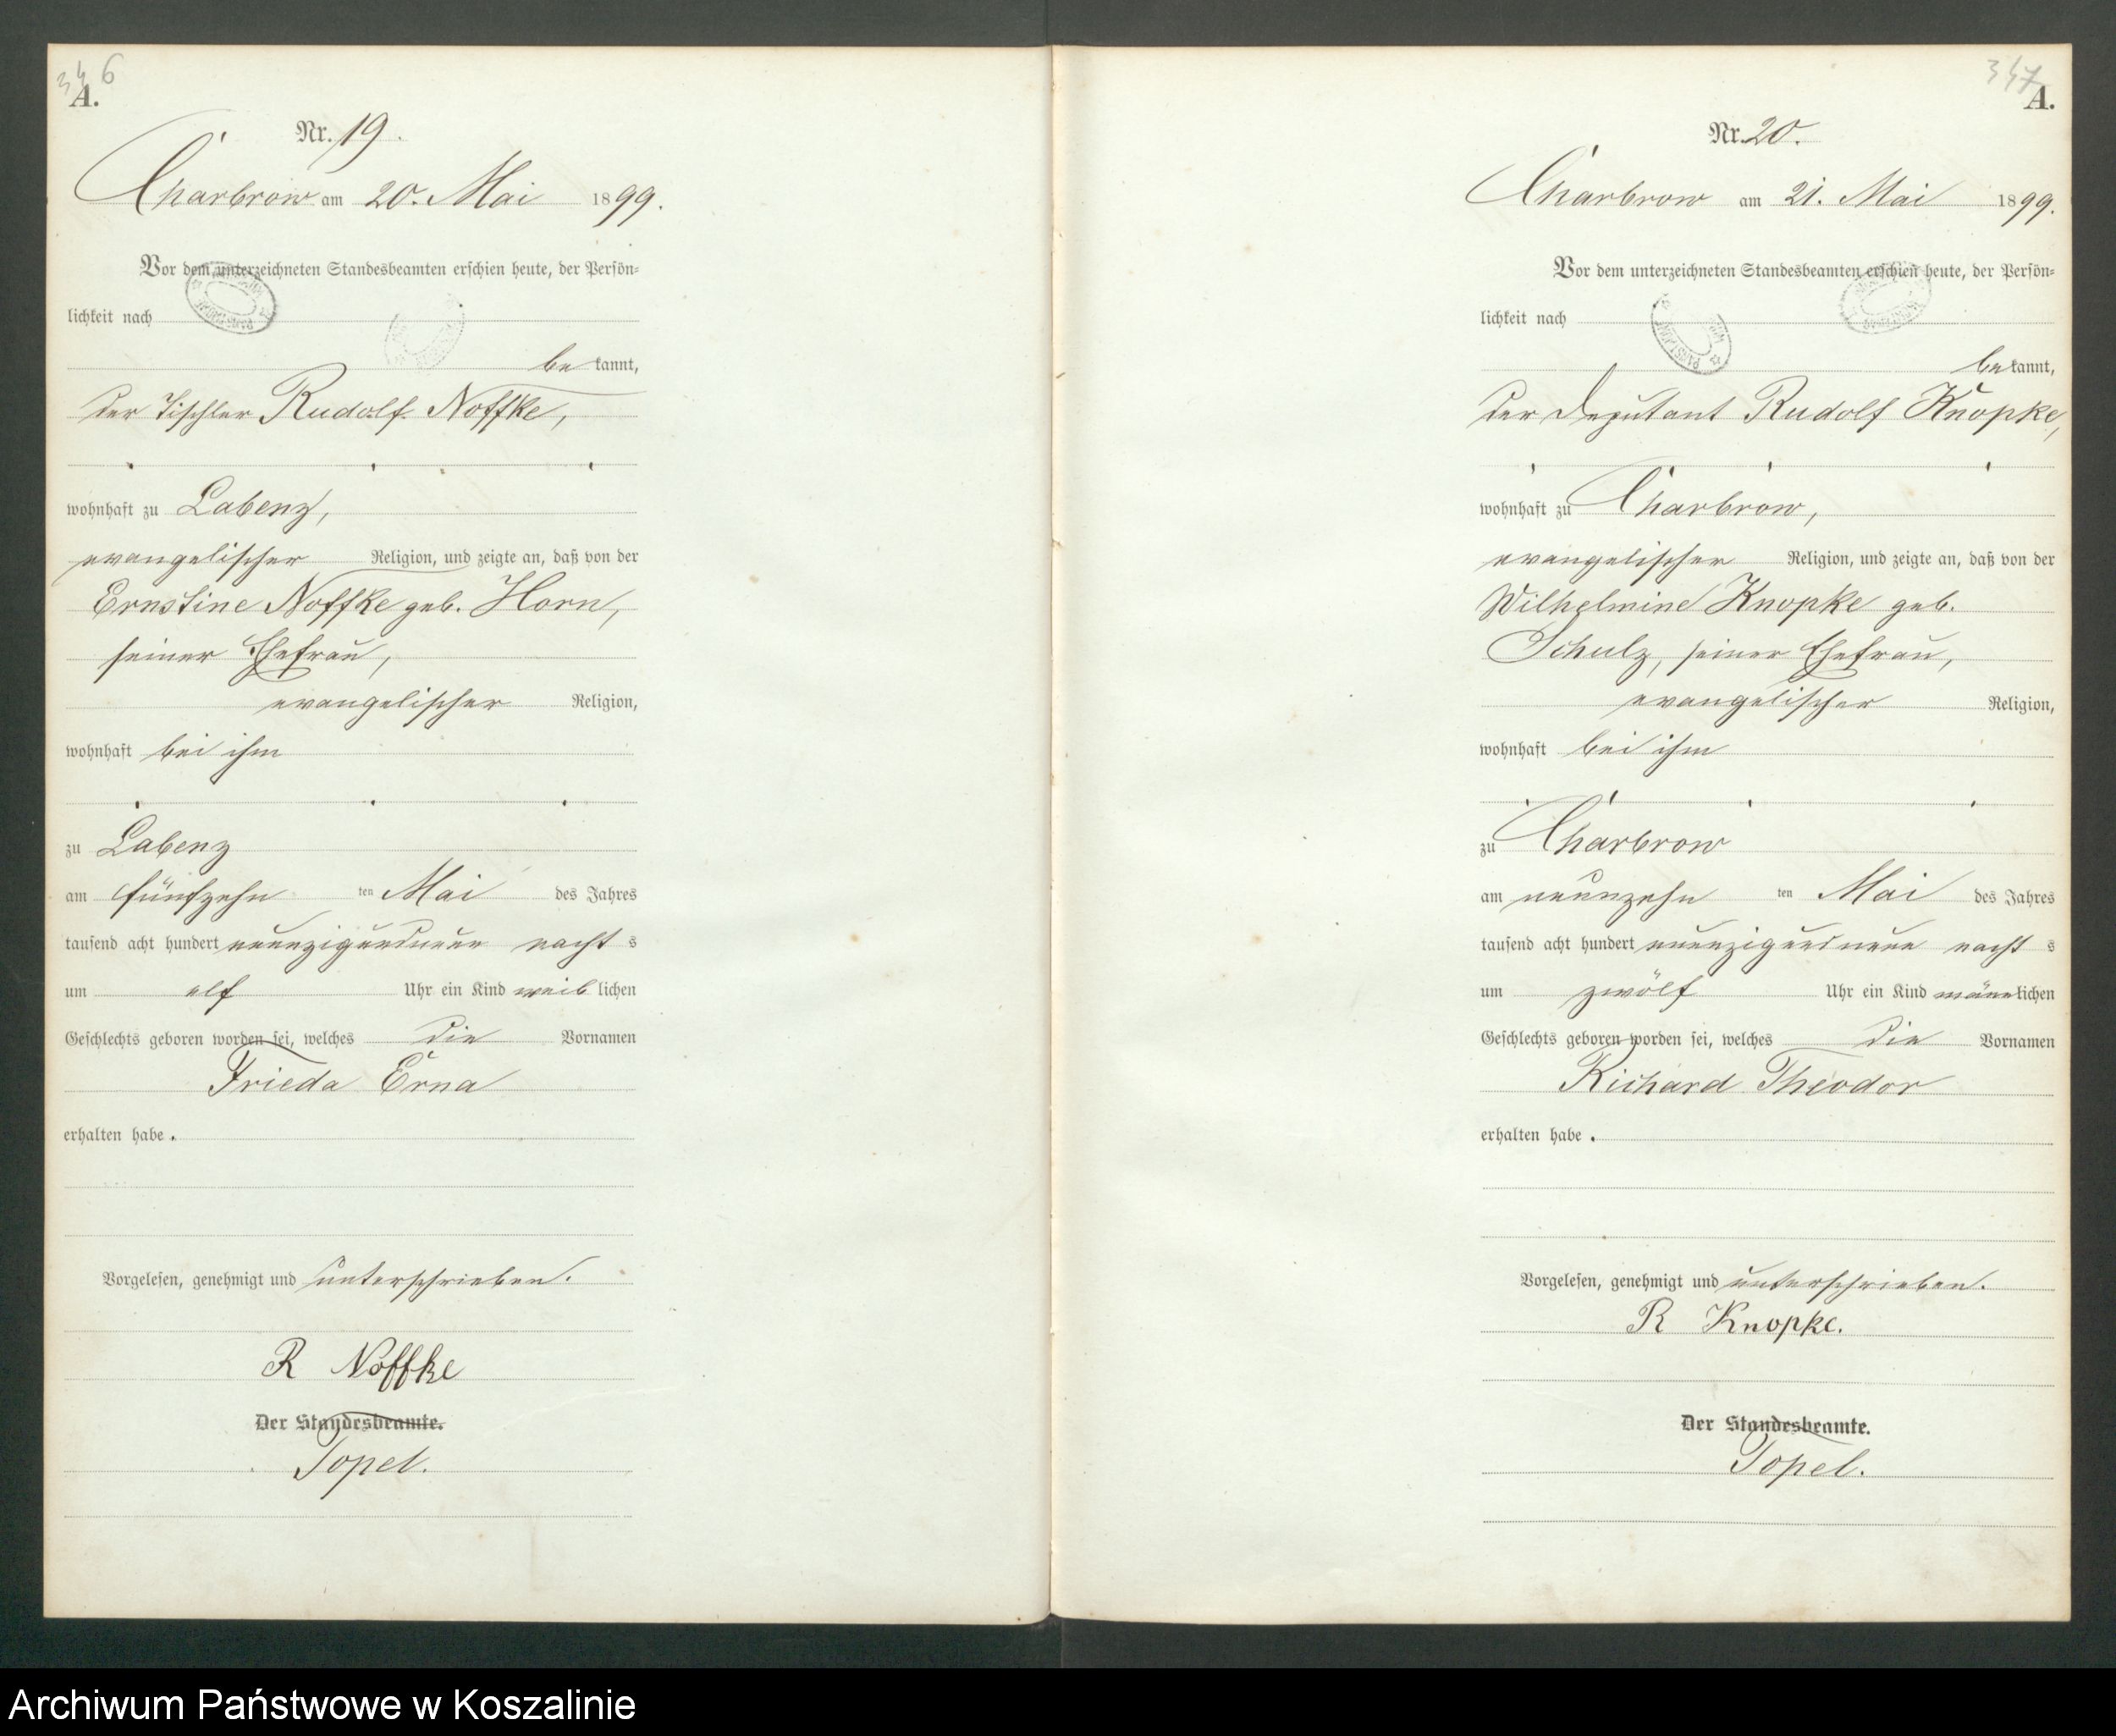 346
A.
Nr. 19.
Charbrow am 20. Mai 1899.
Vor dem unterzeichneten Standesbeamten erschien heute, der Persön=
lichkeit nach
be kannt,
der Tischler Rudolf Noffke,
wohnhaft zu Labenz,
evangelischer Religion, und zeigte an, daß von der
Ernstine Noffke geb. Horn,
seiner Ehefrau,
evangelischer Religion,
wohnhaft bei ihm
zu Labenz
am fünfzehn ten Mai des Jahres
tausend acht hundert neunzigundneun nacht s
um elf Uhr ein Kind weib lichen
Geschlechts geboren worden sei, welches die Vornamen
Frieda Erna
erhalten habe.
Vorgelesen, genehmigt und unterschrieben.
R Noffke
Der Standesbeamte.
Topel.
347
A.
Nr. 20.
Charbrow am 21. Mai 1899.
Vor dem unterzeichneten Standesbeamten erschien heute, der Persön=
lichkeit nach
be kannt,
der Deputant Rudolf Knopke,
wohnhaft zu Charbrow,
evangelischer Religion, und zeigte an, daß von der
Wilhelmine Knopke geb.
Schulz, seiner Ehefrau,
evangelischer Religion,
wohnhaft bei ihm
zu Charbrow
am neunzehn ten Mai des Jahres
tausend acht hundert neunzigundneun nacht s
um zwölf Uhr ein Kind männ lichen
Geschlechts geboren worden sei, welches die Vornamen
Richard Theodor
erhalten habe.
Vorgelesen, genehmigt und unterschrieben.
R Knopke.
Der Standesbeamte.
Topel.
Archiwum Państwowe w Koszalinie